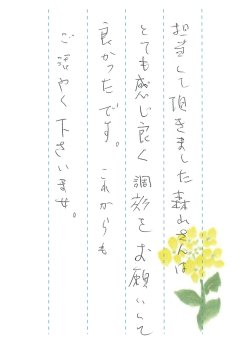 担当して頂きました森山さんは
とても感じ良く調剤をお願いして
良かったです。これからも
ご活やく下さいませ。